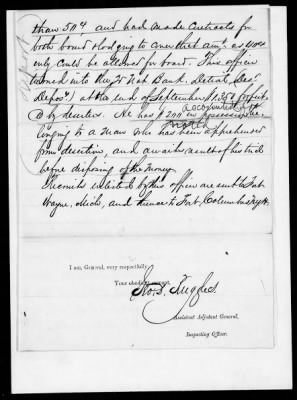 than 50¢ and had made contracts for
both board & lodging to cover that am't as 40¢
only could be allowed for board. This officer
turned into the 2d Nat Bank, Detroit, (Des.
Depos'y) at the end of September $1,350 forfeit-
ed by deserters. He has $200 in possession be-
longing to a man who has been apprehended
from desertion, and awaits result of his trial
before disposing of the money.
Recruits enlisted by this officer are sent to Fort
Wayne, Mich, and thence to Fort Columbus, N.Y.H.
I am, General, very respectfully,
Your obedient servant,
Assistant Adjutant General,
Inspecting Officer.